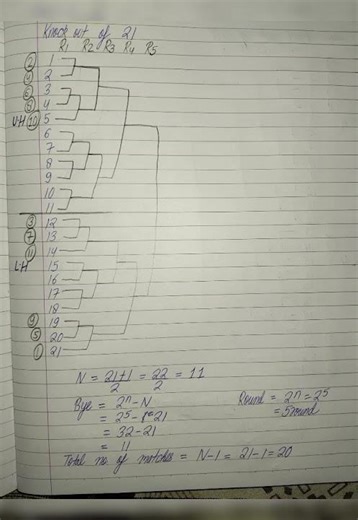 Knock out of 21
R1 R2 R3 R4 R5
② 1
④ 2
⑥ 3
⑧ 4
U·H ⑩ 5
6
7
8
9
10
11
③ 12
⑦ 13
⑪ 14
L·H 15
16
17
18
⑨ 19
⑤ 20
① 21
N = 21+1/2 = 22/2 = 11
Bye = 2ⁿ - N
= 2⁵ - 21
= 32 - 21
= 11
Round = 2ⁿ = 2⁵
= 5 round
Total no of matches = N-1 = 21-1 = 20